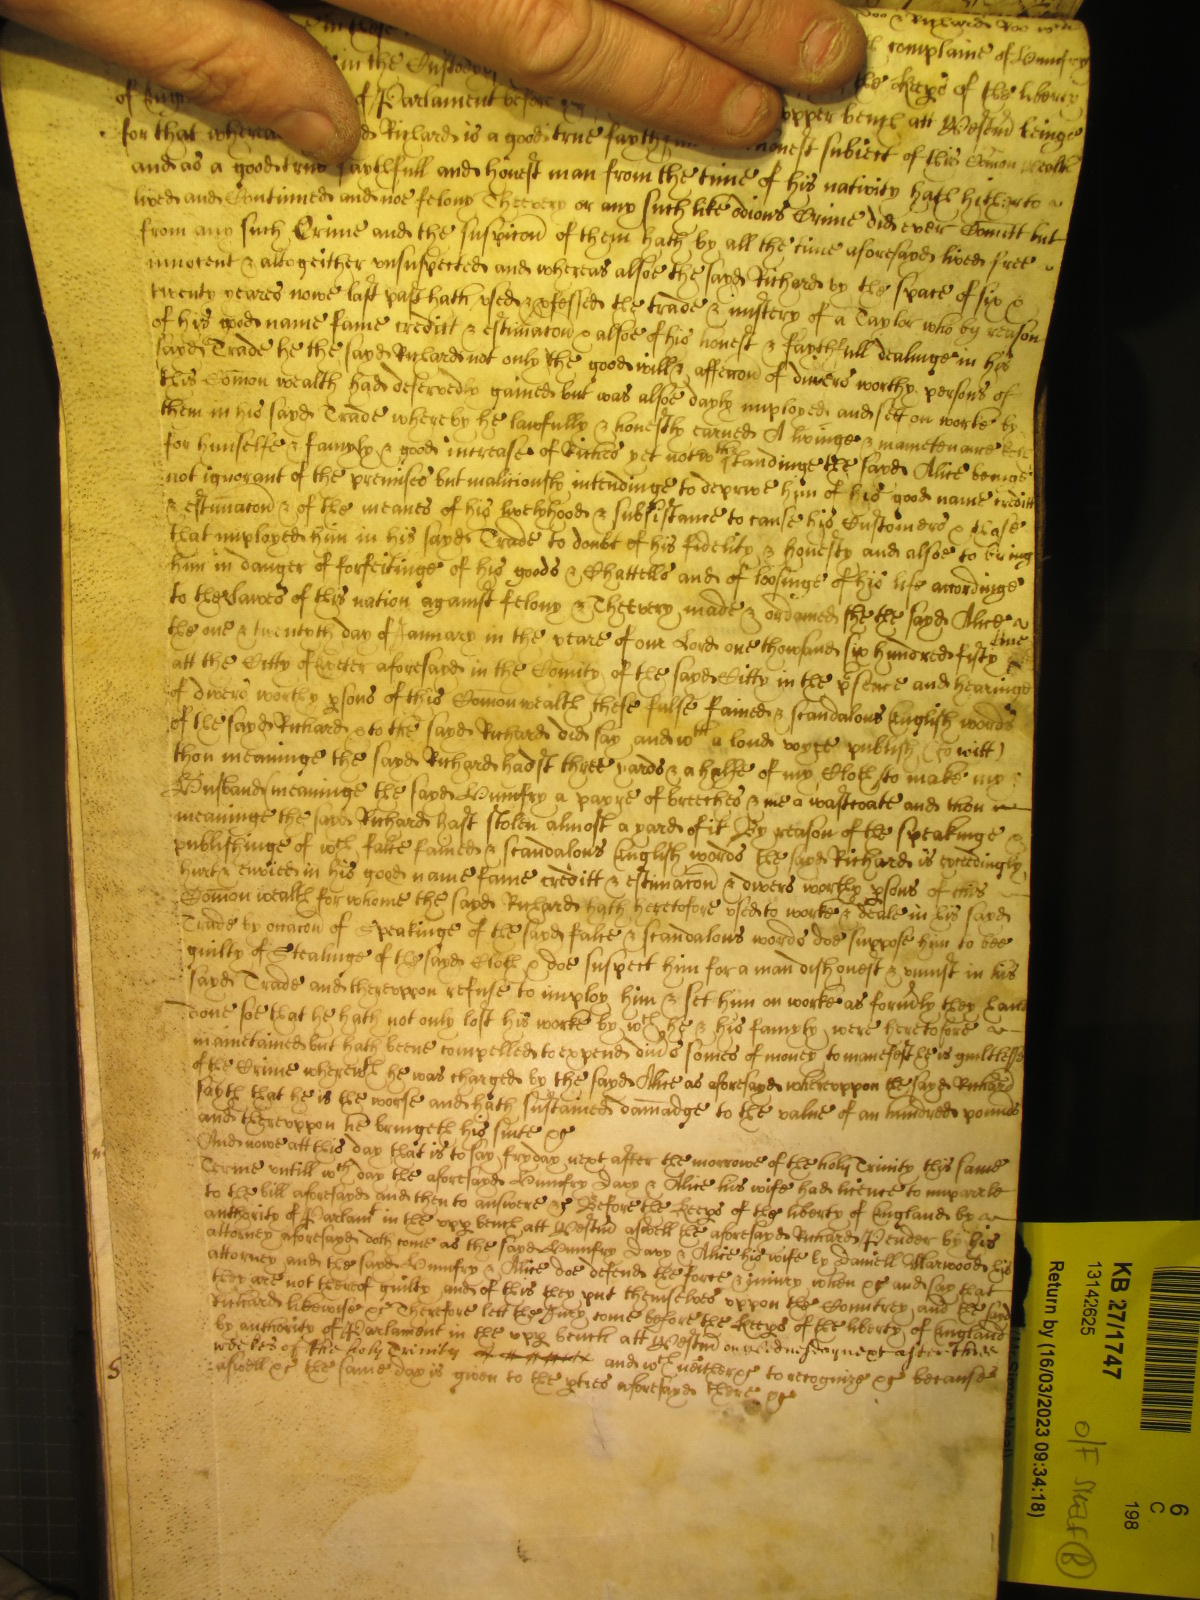 Doo & Richard Roo wch
complaine of Humfry
in the Custody the Keeps of the liberty
of Parlament before upper bench att Westm̃ beinge
for that Richard is a good true honest subiect of this Com̃on wealth
and as a good true faythfull and honest man from the time of his nativity hath hitherto
lived and Continued and noe felony Theevery or any such like odious Crime did ever Comitt but
from any such Crime and the suspicon of them hath by all the time aforesayd lived free
innocent & altogeither unsuspected and whereas alsoe the sayd Richard by the space of six &
twenty yeares nowe last past hath used & pfessed the trade & mistery of a Taylor who by reason
of his good name fame creditt & estimacon & alsoe of his honest & faythfull dealinge in his
sayd Trade he the sayd Richard not only the good will & affeccon of divers worthy persons of
this Com̃on wealth had deservedly gained but was alsoe dayly imployed and sett on worke by
them in his sayd Trade whereby he lawfully & honestly earned A livinge & maintenance
for himselfe & famyly & good increase of Riches yet notwthstandinge the sayd Alice beinge
not ignorant of the premises but maliciously intendinge to deprive him of his good name creditt
& estimacon & of the meanes of his livelyhood & subsistance to cause his Customers &
that imployed him in his sayd Trade to doubt of his fidelity & honesty and alsoe to bring
him in danger of forfeitinge of his goods & Chattells and of loosinge of his life accordinge
to the Lawes of this nation against felony & Theevery made & ordained she the sayd Alice
the one & twentyth day of January in the yeare of our Lord one thowsand six hundred fifty
att the Citty of Exeter aforesayd in the County of the sayd Citty in the psence and hearinge
of divers worthy psons of this Com̃onwealth these false fained & scandalous English words
of the sayd Richard & to the sayd Richard did say and wth a loud voyce publish (to witt)
thou meaninge the sayd Richard hadst three yards & a halfe of my Cloth to make my
Husband (meaninge the sayd Humfry a payre of breeches & me a wastcoate and thou
meaninge the sayd Richard hast stolen almost a yard of it By reason of the speakinge &
publishinge of wch false fained & scandalous English words the sayd Richard is exceedingly
hurt & in his good name fame creditt & estimacon & divers worthy psons of this
Com̃on wealth for whome the sayd Richard hath heretofore used to worke & deale in his sayd
Trade by occacon of Speakinge of the sayd false & scandalous words doe suppose him to bee
guilty of Stealinge of the sayd Cloth & doe suspect him for a man dishonest & uniust in his
sayd Trade and thereuppon refuse to imploy him & set him on worke as formly they have
done soe that he hath not only lost his worke by wch he & his famyly were heretofore
maintained but hath beene compelled to expend divs somes of money to manefest he is guiltlesse
of the Crime wherewth he was charged by the sayd Alice as aforesayd whereuppon the sayd Richard
sayth that he is the worse and hath sustained damadge to the value of an hundred pounds
and thereuppon he bringeth his suite &c
And nowe att this day that is to say fryday next after the morrowe of the holy Trinity this same
Terme untill wch day the aforesayd Humfry Davy & Alice his wife had licence to imparle
to the bill aforesayd and then to answere &c Before the Keeps of the liberty of England by
authority of Parlamt in the upp bench att Westm̃ aswell the aforesayd Richard Pender by his
attorney aforesayd doth come as the sayd Humfry Davy & Alice his wife by Daniell Marwood his
attorney and the sayd Humfry & Alice doe defend the force & iniury when &c and say that
they are not thereof guilty and of this they put themselves uppon the Countrey and the sayd
Richard likewise &c Therefore lett the Jury come before the Keeps of the liberty of England
by authority of Parlament in the upp bench att Westm̃ on Wednesday next after three
weekes of the holy Trinity and wch neither &c to recognize &c because
aswell &c the same day is given to the pties aforesayd there &c
S
KB 27/1747
13142625
Return by (16/03/2023 09:34:18)
6
C
198
O/F